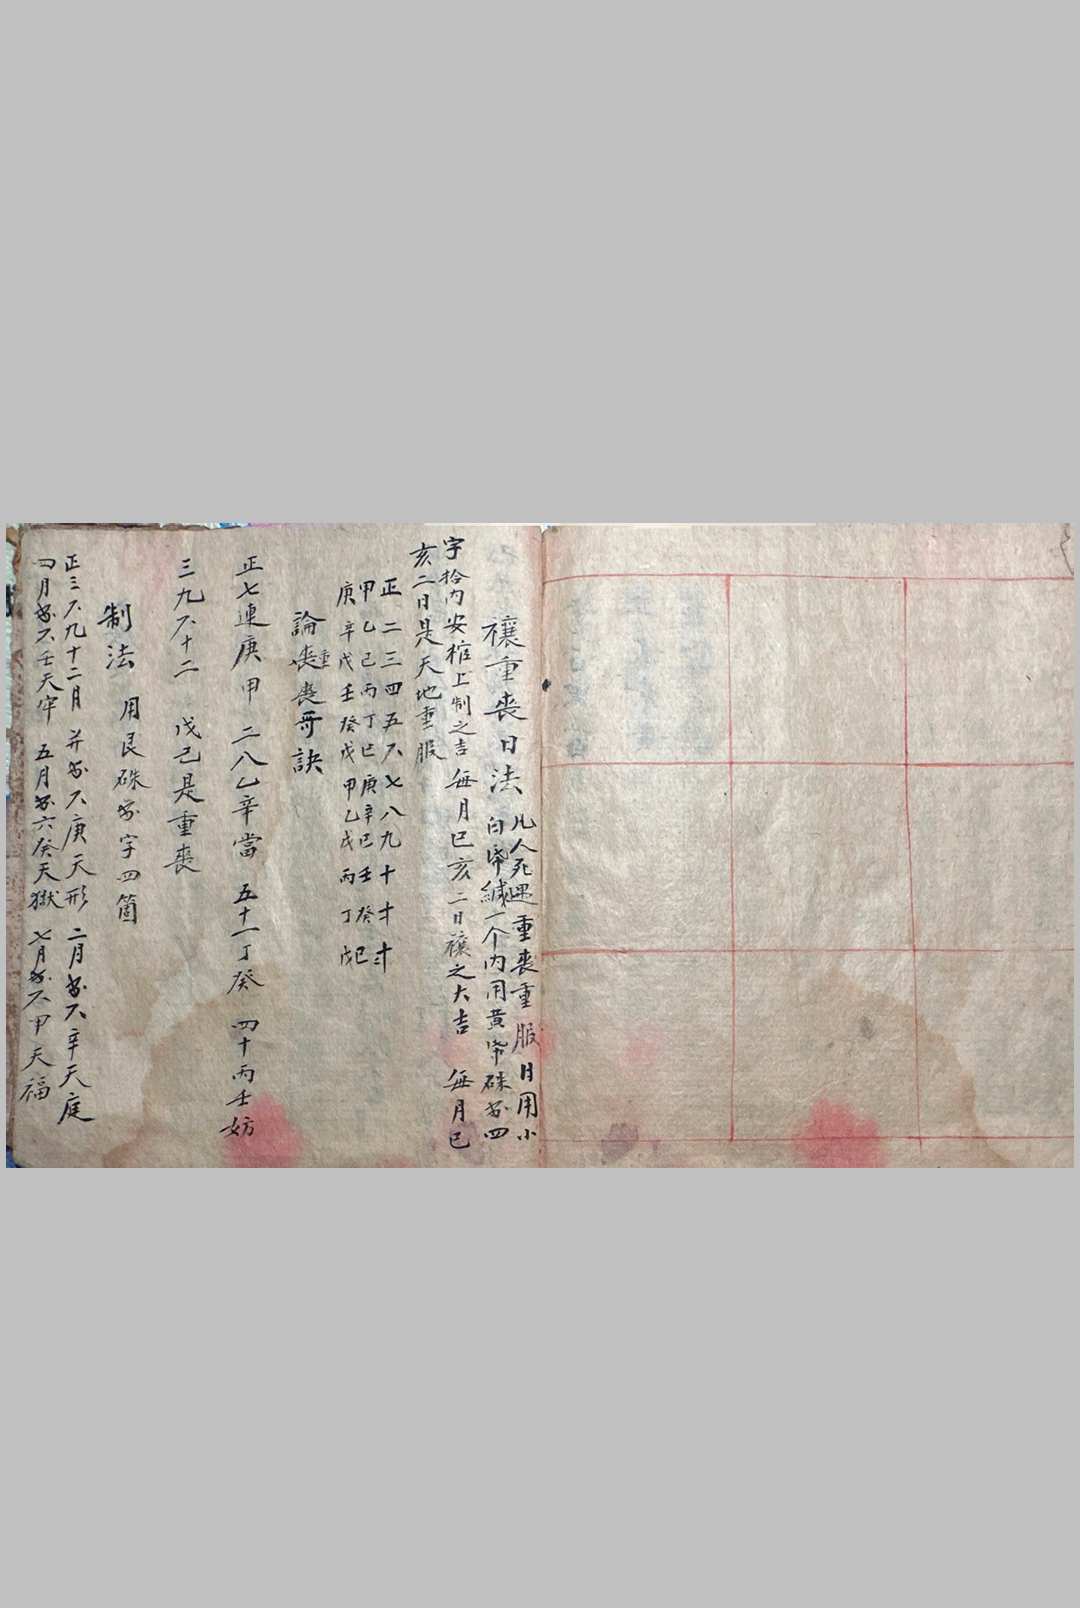 禳重丧日法
凡人死遇重丧重服日用小
白帋緘一个内用黄帋硃
字拾内安棺上制之吉 每月巳亥二日禳之大吉 每月巳
亥二日是天地重服
正二三四五六七八九十
甲乙己丙丁巳庚辛巳壬癸巳
庚辛戊壬癸戊甲乙戊丙丁戊
論重丧丧哥訣
正七連庚甲 二八乙辛當 五十一丁癸 四十丙壬妨
三九六十二 戊己是重丧
制法 用艮硃字四箇
正三六九十二月 并六庚天形 二月六辛天庭
四月六壬天牢 五月六癸天獄 七月六甲天福